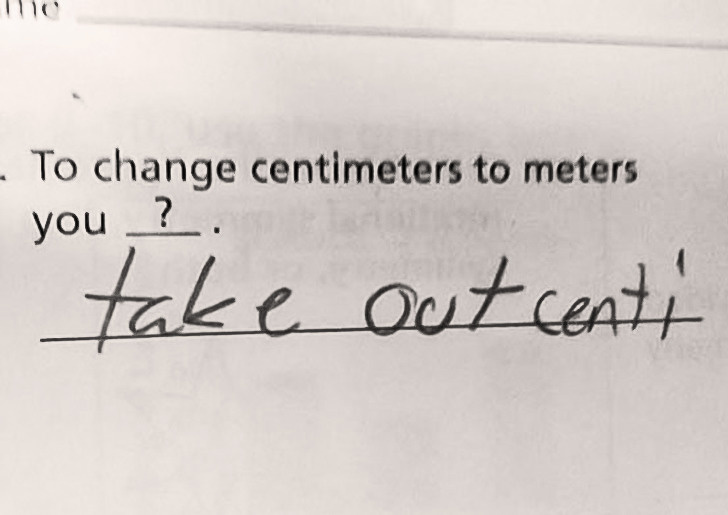 . To change centimeters to meters
you ? .
take out centi